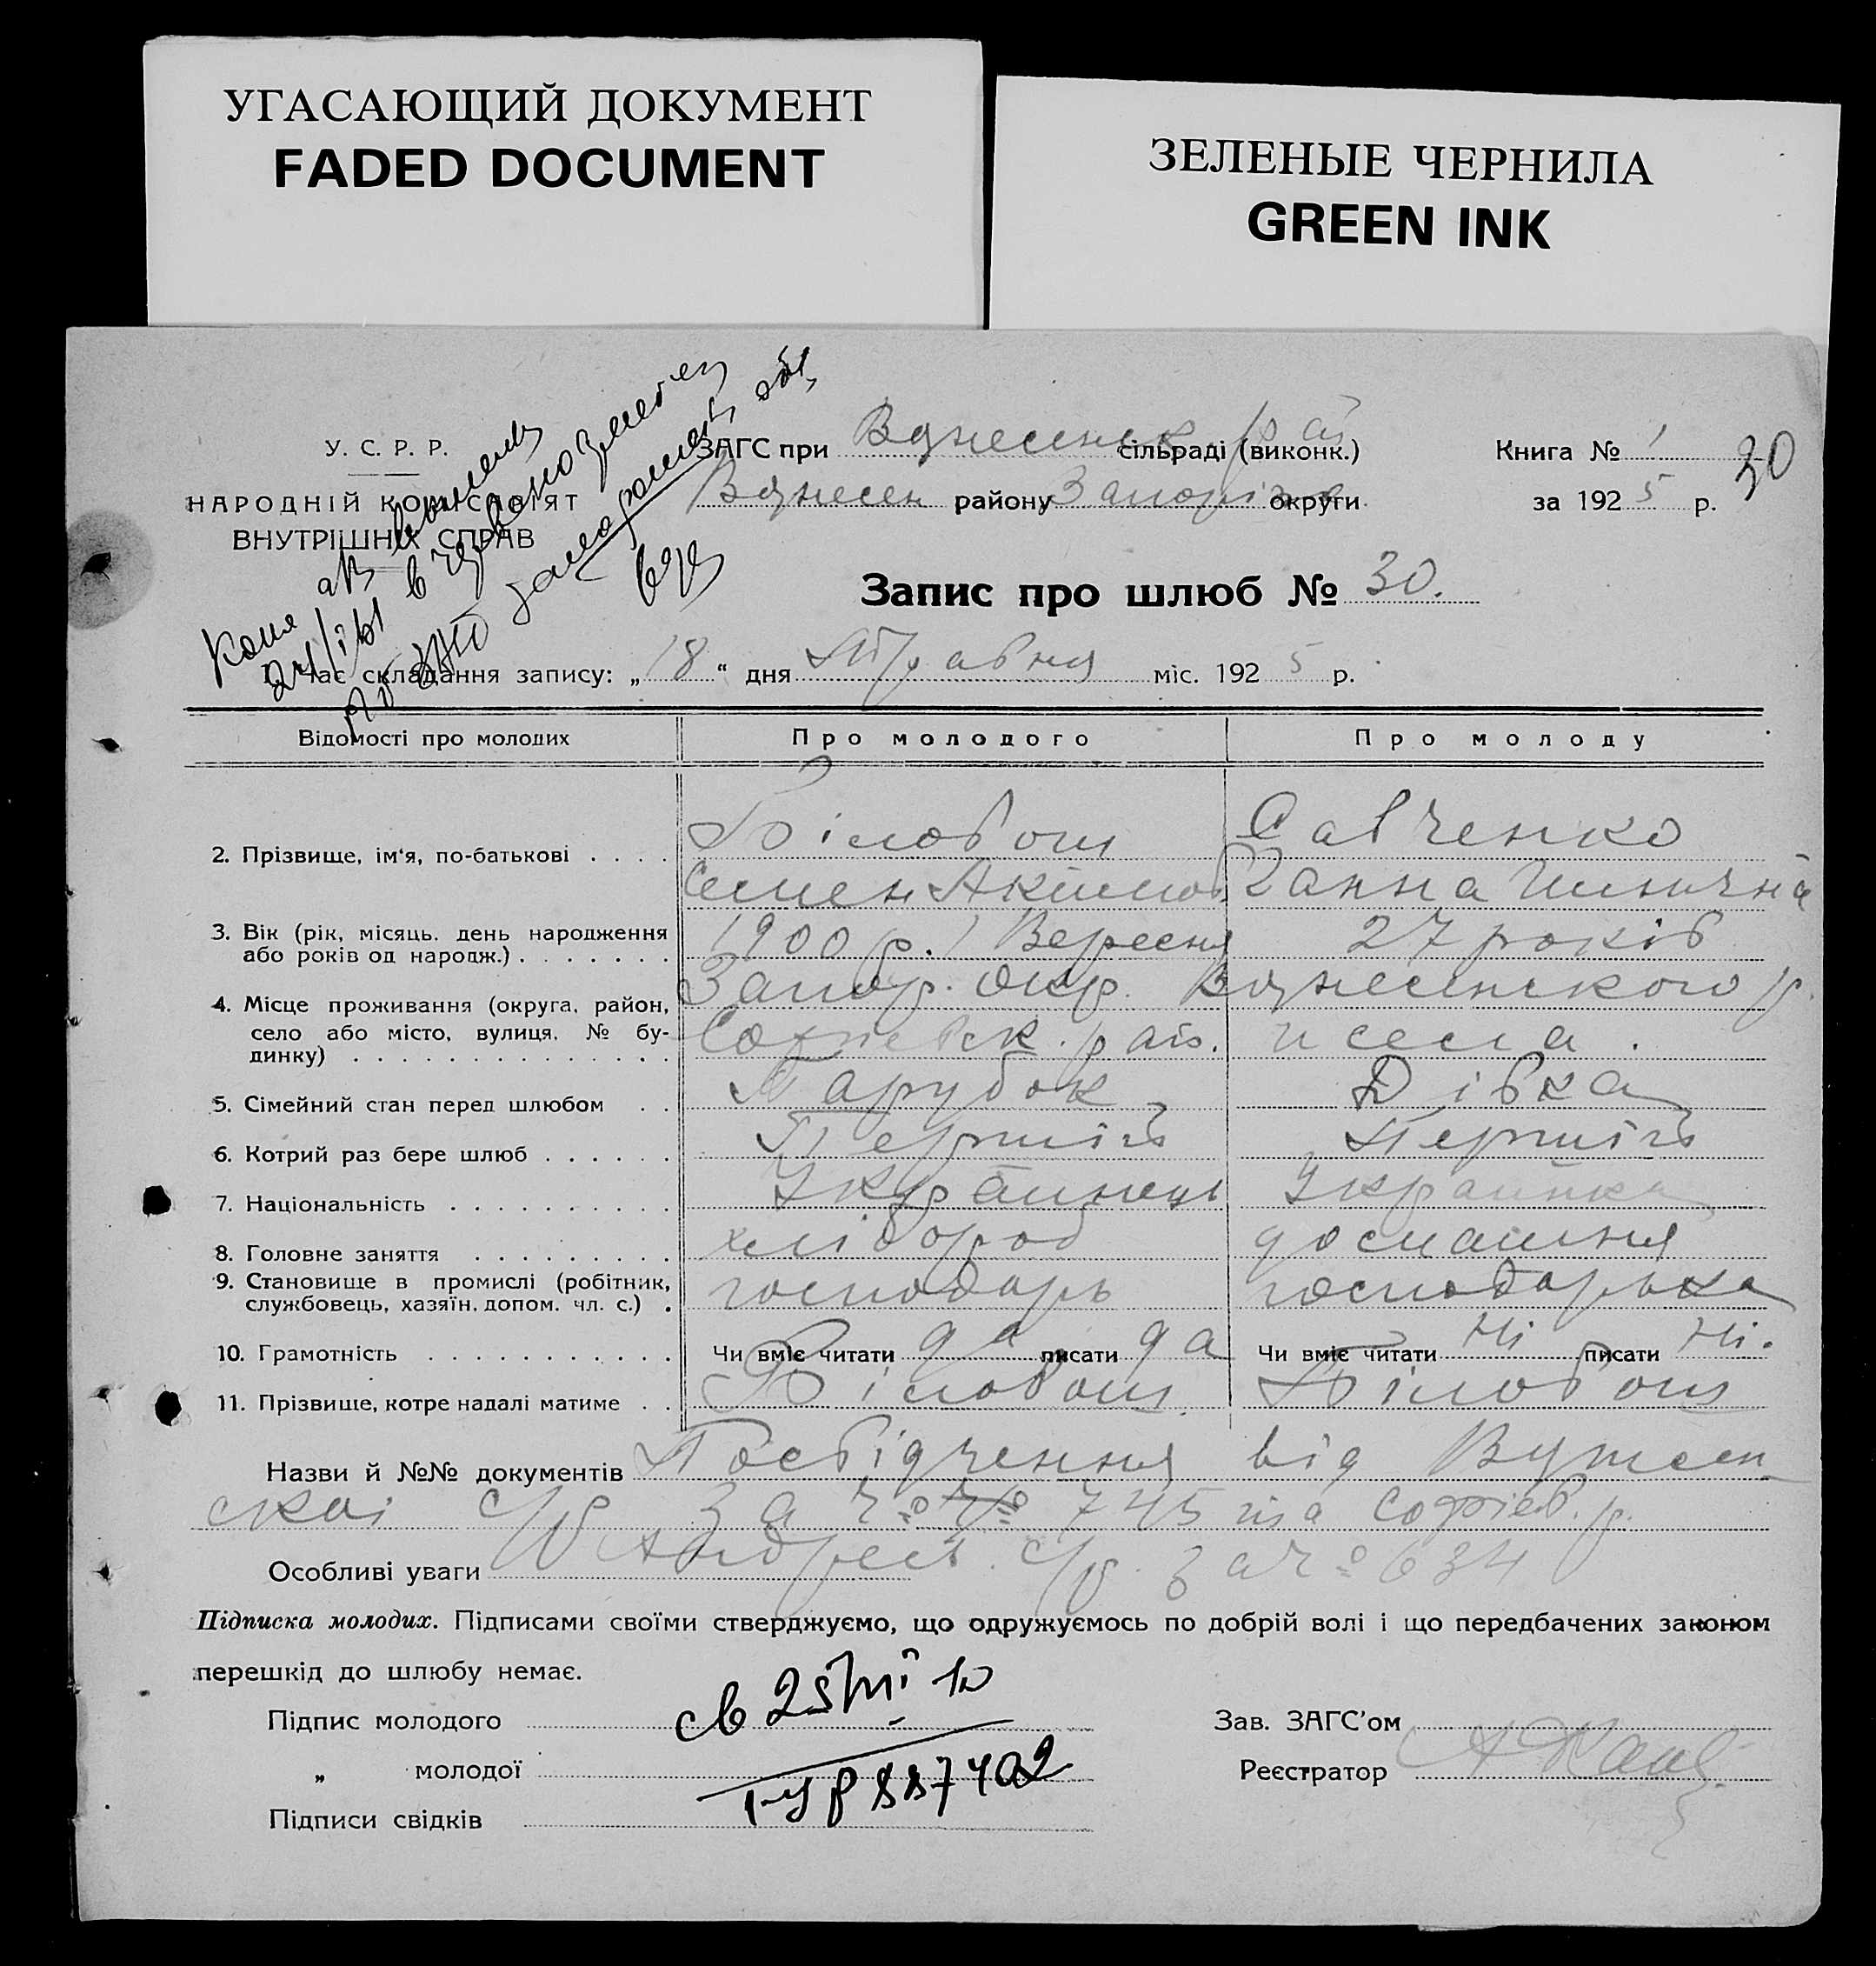 УГАСАЮЩИЙ ДОКУМЕНТ
FADED DOCUMENT
ЗЕЛЕНЫЕ ЧЕРНИЛА
GREEN INK
У. С. Р. Р.
НАРОДНІЙ КОМІСАРІЯТ
ВНУТРІШНІХ СПРАВ
ЗАГС при Вднесенск. рай сільраді (виконк.)
Вднесен району Запоріз округи
Книга № 1
за 1925 р.
30
Запис про шлюб № 30.
1. Час складання запису: „18“ дня Травня міс. 1925 р.
Відомості про молодих Про молодого Про молоду
2. Прізвище, ім‘я, по-батькові Біловош Савченко
Семен Акимов Ганна
3. Вік (рік, місяць, день народження або років од народж.) 1900 р. 1 Вересня 27 років
4. Місце проживання (округа, район, село або місто, вулиця, № будинку) Запор. окр. Вднесенского р.
Софієвск. рай. села.
5. Сімейний стан перед шлюбом Парубок Дівка
6. Котрий раз бере шлюб Перший Перший
7. Національність Українець Українка
8. Головне заняття хлібороб домашня
9. Становище в промислі (робітник, службовець, хазяїн, допом. чл. с.) господарь господарька
10. Грамотність Чи вміє читати да писати да Чи вміє читати Ні писати Ні.
11. Прізвище, котре надалі матиме Біловош Біловош
Назви й №№ документів Посвідчення від
скоі с/р за № 745 та Софієв. р.
Особливі уваги Андреев. с/р. за № 634
Підписка молодих. Підписами своїми стверджуємо, що одружуємось по добрій волі і що передбачених законом
перешкід до шлюбу немає.
Підпис молодого
„ молодої
Підписи свідків
Зав. ЗАГС’ом
Реєстратор